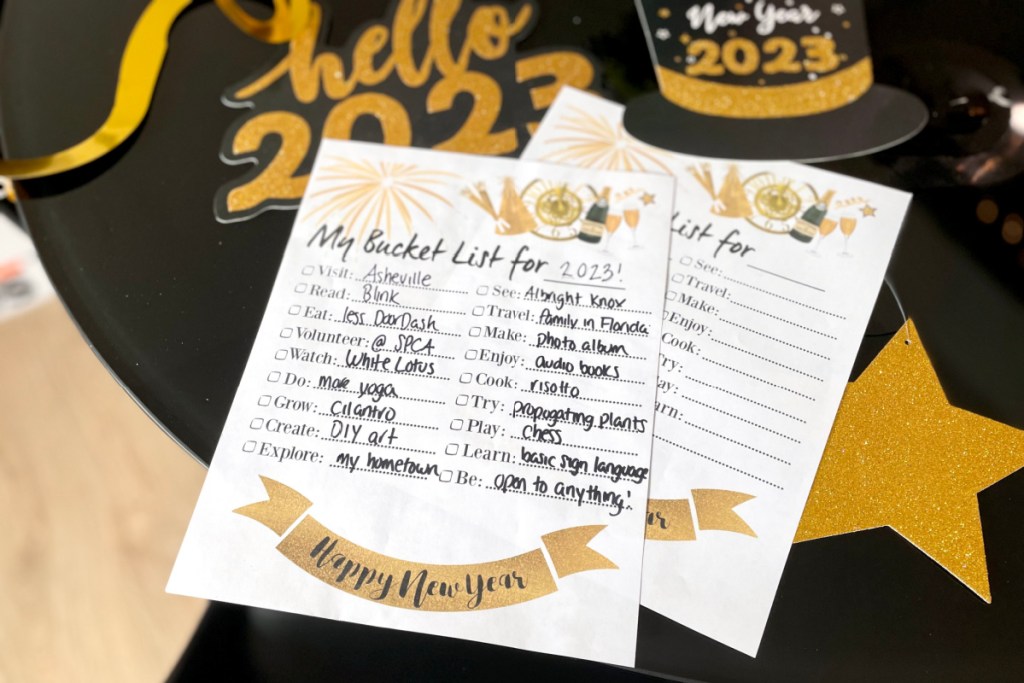 hello
2023
New Year
2023
My Bucket List for 2023!
Visit: Asheville
Read: Blink
Eat: less DoorDash
Volunteer: @ SPCA
Watch: White Lotus
Do: more yoga
Grow: cilantro
Create: DIY art
Explore: my hometown
See: Albright Knox
Travel: family in Florida
Make: photo album
Enjoy: audio books
Cook: risotto
Try: propagating plants
Play: chess
Learn: basic sign language
Be: open to anything!
Happy New Year
List for
See:
Travel:
Make:
Enjoy:
Cook: